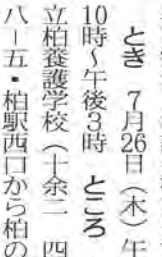 とき　7月26日（木）午
10時〜午後3時　ところ
立柏養護学校（十余二　四
八ー五・柏駅西口から柏の